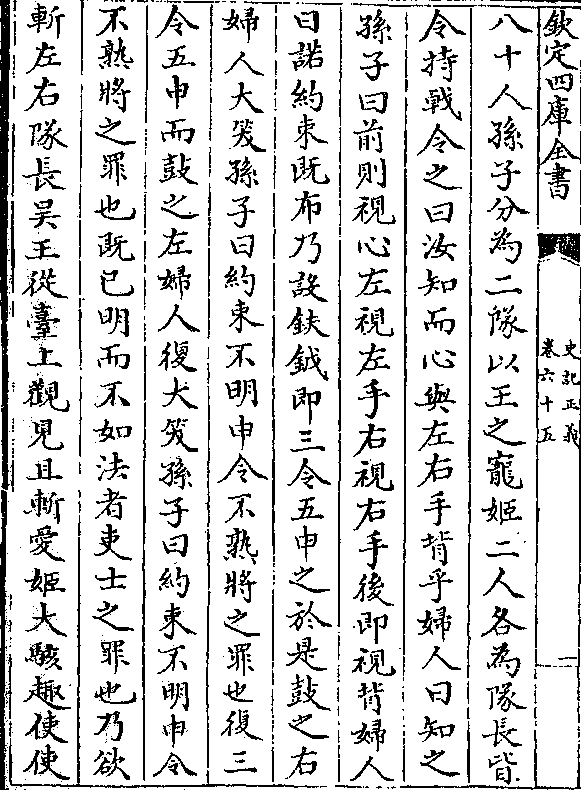 欽定四庫全書
史記正義
卷六十五
一
八十人孫子分為二隊以王之寵姬二人各為隊長皆
令持戟令之曰汝知而心與左右手背乎婦人曰知之
孫子曰前則視心左視左手右視右手後即視背婦人
曰諾約束既布乃設鈇鉞即三令五申之於是鼓之右
婦人大笑孫子曰約束不明申令不熟將之罪也復三
令五申而鼓之左婦人復大笑孫子曰約束不明申令
不熟將之罪也既已明而不如法者吏士之罪也乃欲
斬左右隊長吳王從臺上觀見且斬愛姬大駭趣使使